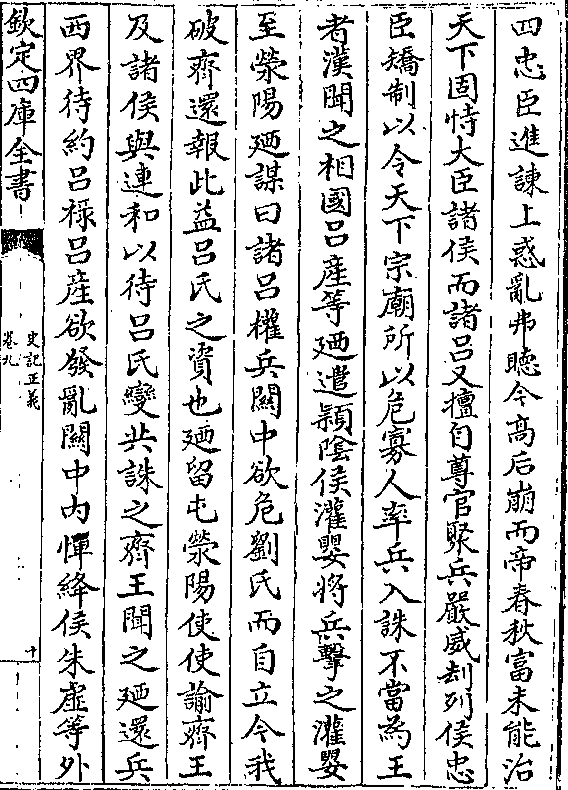 四忠臣進諫上惑亂弗聽今髙后崩而帝春秋富未能治
天下固恃大臣諸侯而諸吕又擅自尊官聚兵嚴威刦列侯忠
臣矯制以令天下宗廟所以危寡人率兵入誅不當為王
者漢聞之相國吕産等廼遣潁陰侯灌嬰將兵擊之灌嬰
至滎陽廼謀曰諸吕權兵闗中欲危劉氏而自立今我
破齊還報此益吕氏之資也廼留屯滎陽使使諭齊王
及諸侯與連和以待吕氏變共誅之齊王聞之廼還兵
西界待約吕祿吕産欲發亂闗中内憚絳侯朱虚等外
欽定四庫全書
史記正義
卷九
十